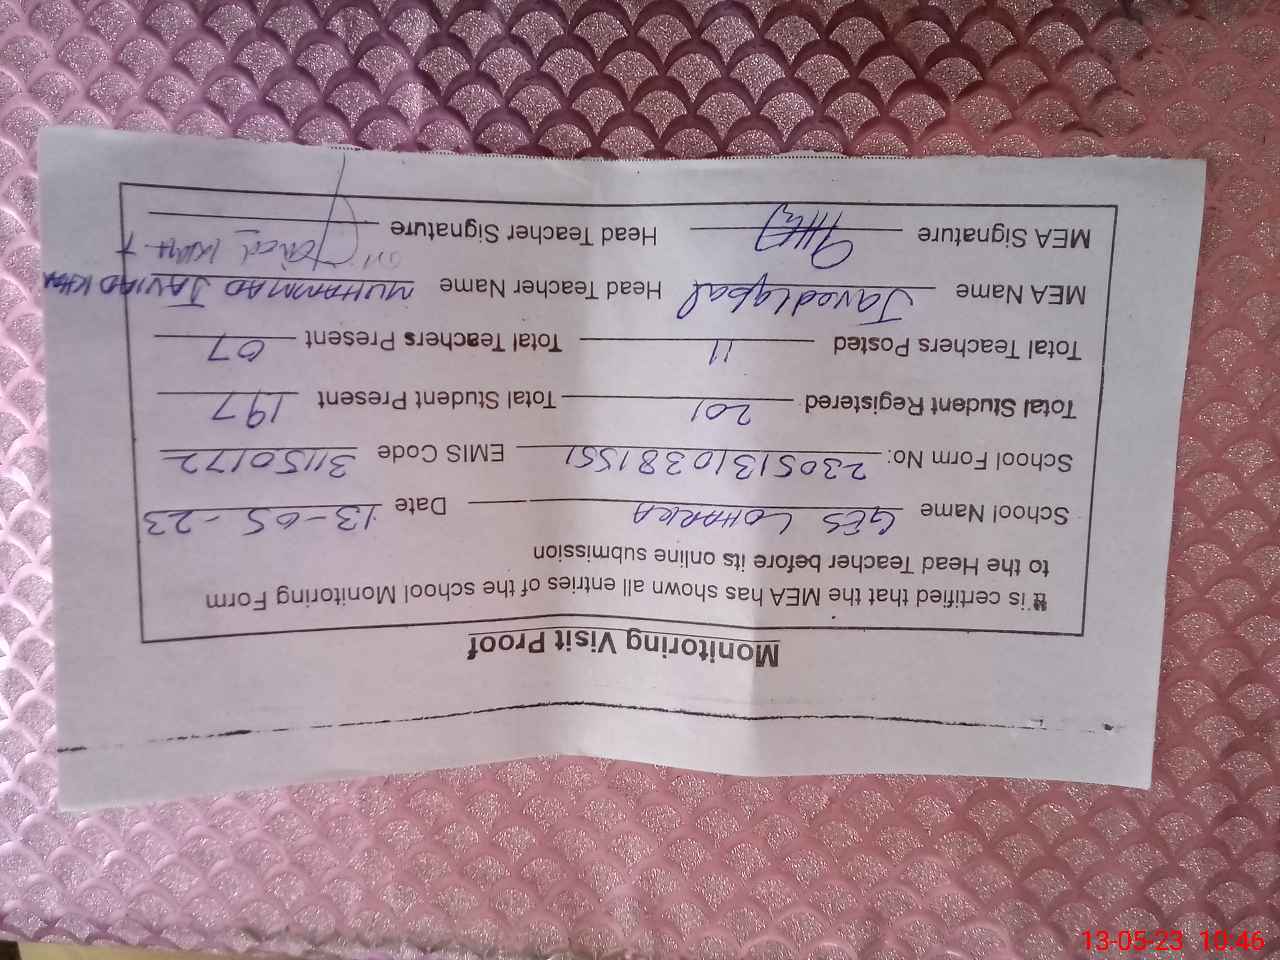 Monitoring Visit Proof
It is certified that the MEA has shown all entries of the school Monitoring Form
to the Head Teacher before its online submission
School Name GES LOHARKA Date 13-05-23
School Form No: 23051310381551 EMIS Code 31150172
Total Student Registered 201 Total Student Present 197
Total Teachers Posted 11 Total Teachers Present 07
MEA Name Javed Iqbal Head Teacher Name MUHAMMAD JAVIAD KHAN
MEA Signature Head Teacher Signature
13-05-23 10:46